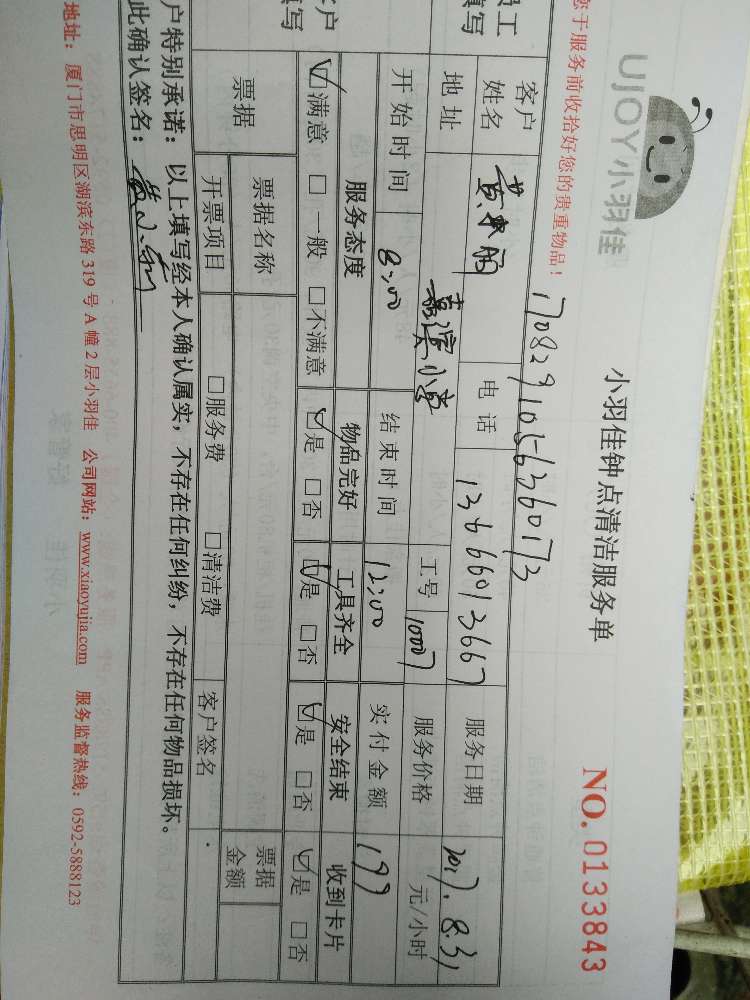 UJOY小羽佳
小羽佳钟点清洁服务单
NO. 0133843
您于服务前收拾好您的贵重物品!
1708291056360173
员工
填写
客户
姓名
电话
13666013667
服务日期
2017.8.31
地址
嘉滨小富
工号
10007
服务价格
元/小时
客户
填写
开始时间
8:00
结束时间
12:00
实付金额
199
服务态度
物品完好
工具齐全
安全结束
收到卡片
☑满意 □一般 □不满意
☑是 □否
☑是 □否
☑是 □否
☑是 □否
票据
票据名称
票据
金额
开票项目
□服务费 □清洁费
客户签名
户特别承诺:以上填写经本人确认属实,不存在任何纠纷,不存在任何物品损坏。
此确认签名:
地址:厦门市思明区湖滨东路 319 号 A 幢 2 层小羽佳 公司网站:www.xiaoyujia.com 服务监督热线:0592-5888123